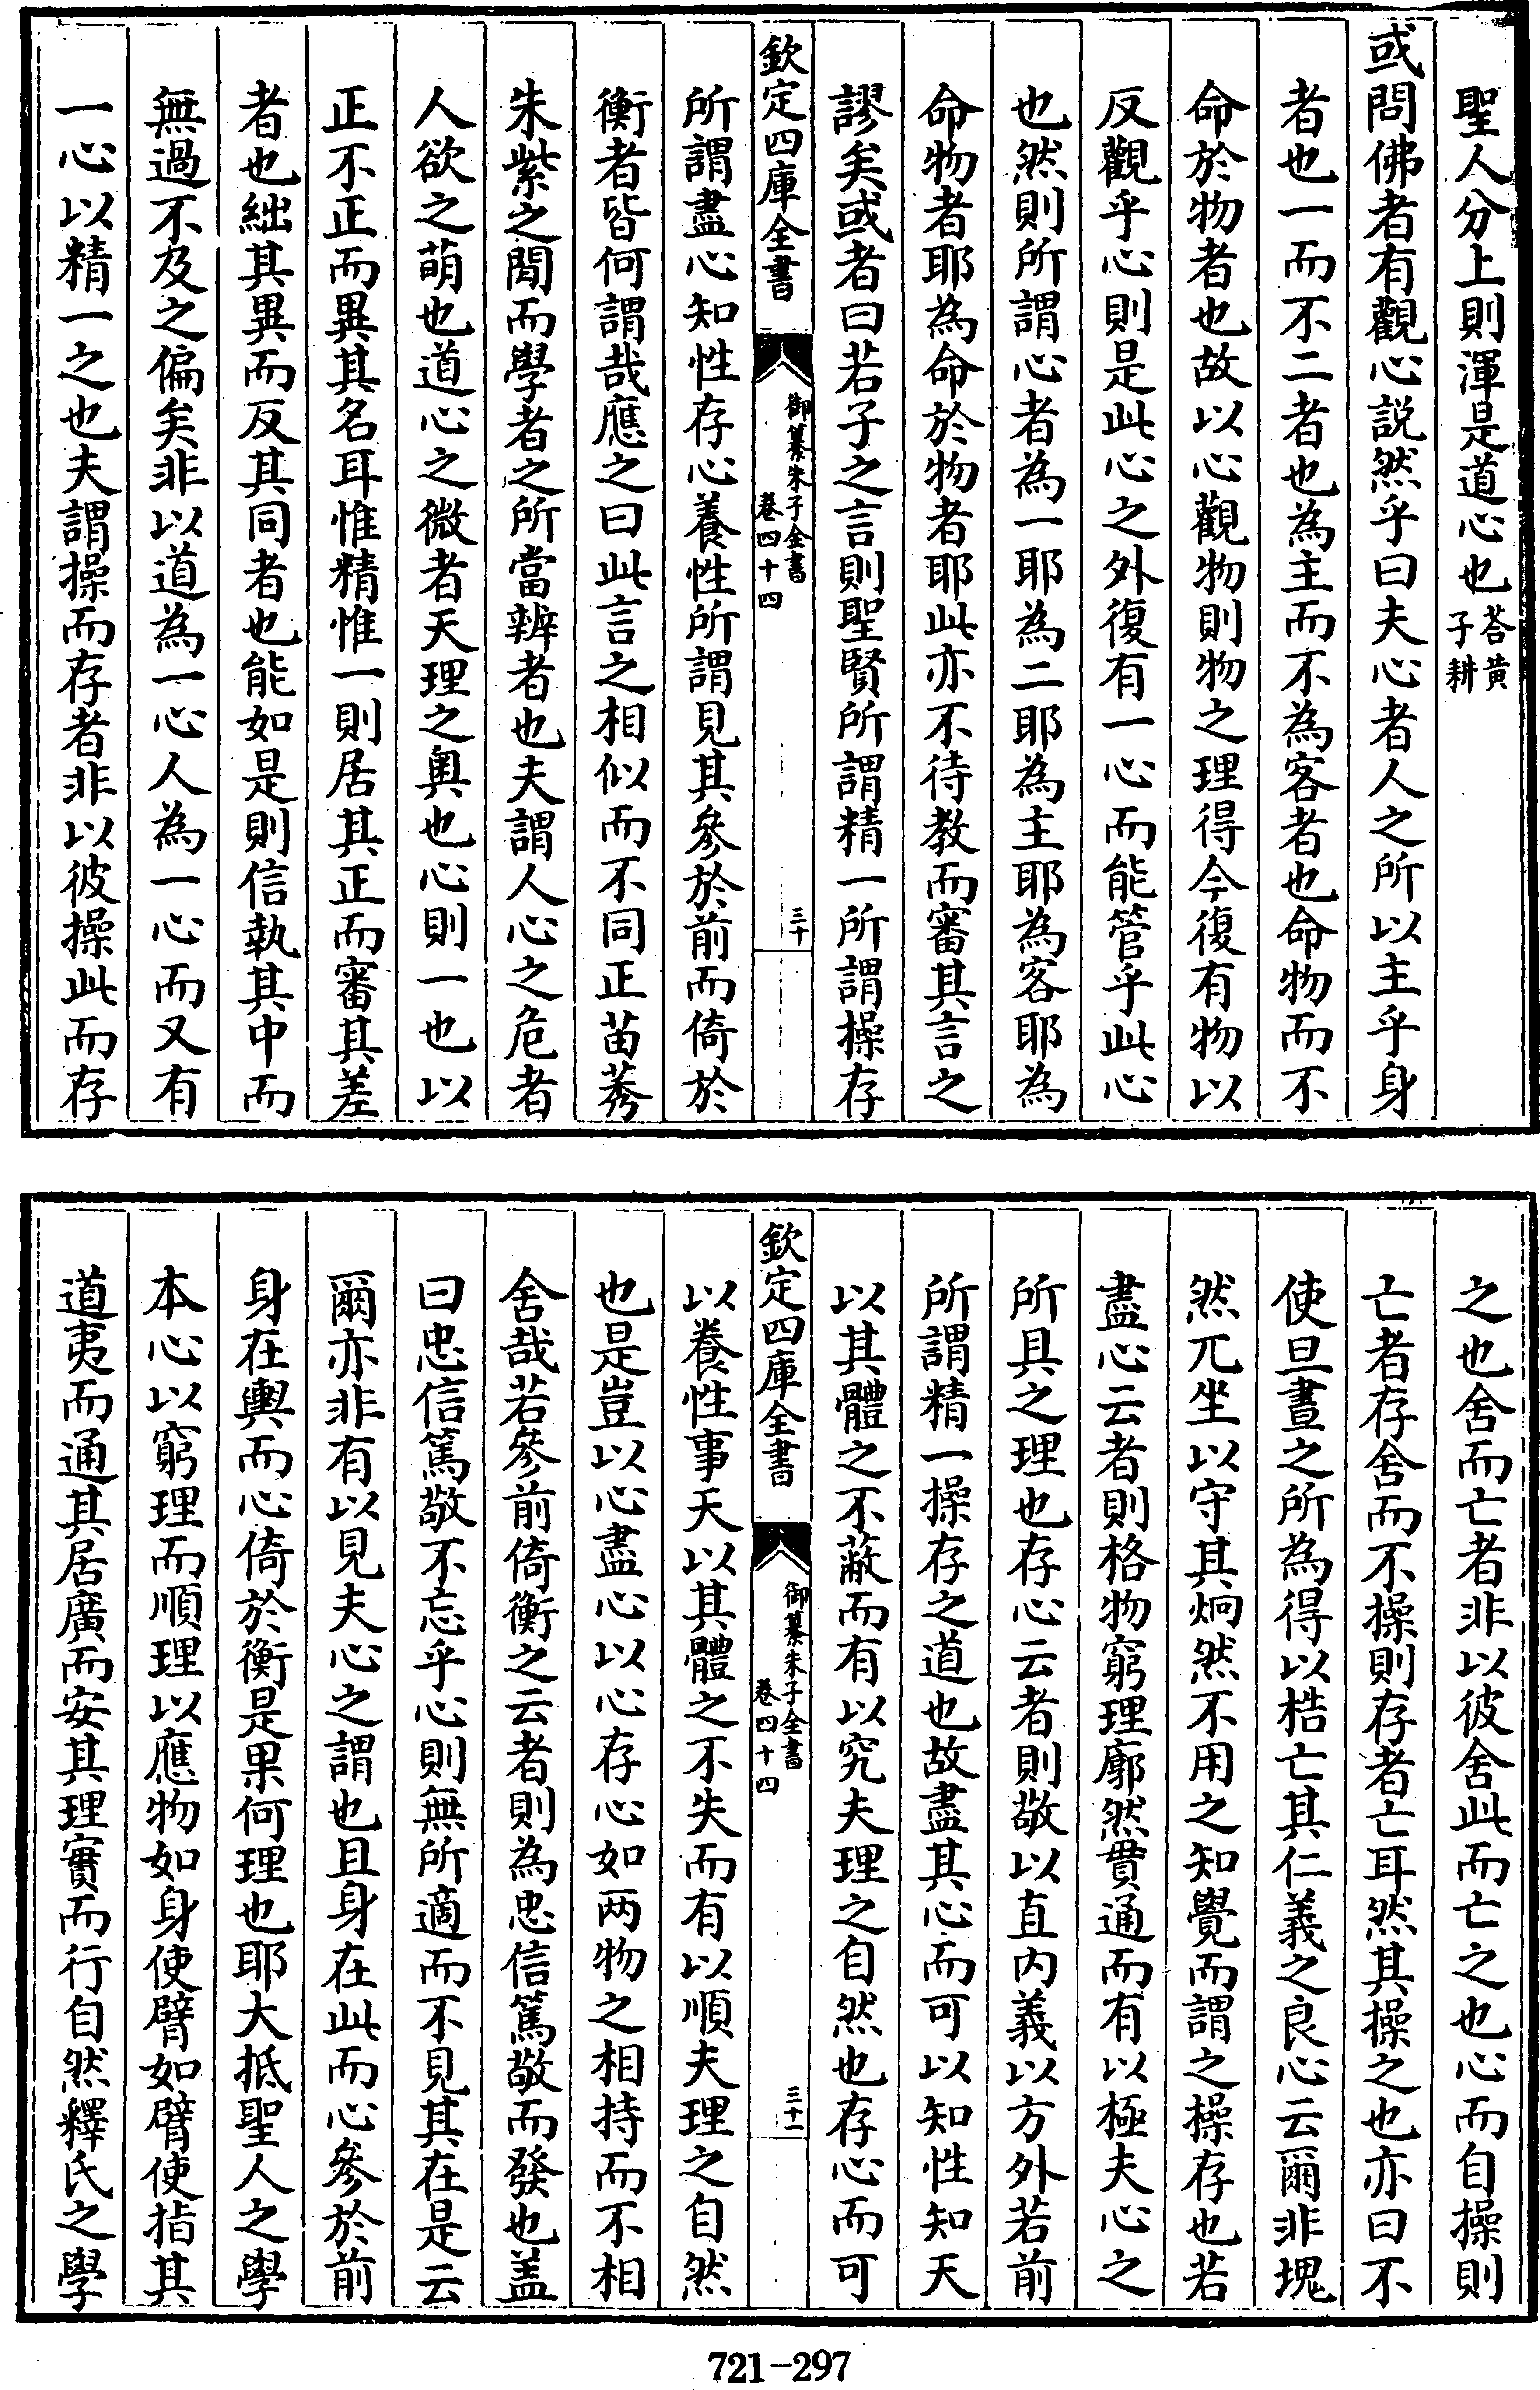 聖人分上則渾是道心也荅黄子耕
或問佛者有觀心説然乎曰夫心者人之所以主乎身
者也一而不二者也為主而不為客者也命物而不
命於物者也故以心觀物則物之理得今復有物以
反觀乎心則是此心之外復有一心而能管乎此心
也然則所謂心者為一耶為二耶為主耶為客耶為
命物者耶為命於物者耶此亦不待教而審其言之
謬矣或者曰若子之言則聖賢所謂精一所謂操存
欽定四庫全書
御纂朱子全書
卷四十四
三十
所謂盡心知性存心養性所謂見其參於前而倚於
衡者皆何謂哉應之曰此言之相似而不同正苗莠
朱紫之間而學者之所當辨者也夫謂人心之危者
人欲之萌也道心之微者天理之奥也心則一也以
正不正而異其名耳惟精惟一則居其正而審其差
者也絀其異而反其同者也能如是則信執其中而
無過不及之偏矣非以道為一心人為一心而又有
一心以精一之也夫謂操而存者非以彼操此而存
之也舍而亡者非以彼舍此而亡之也心而自操則
亡者存舍而不操則存者亡耳然其操之也亦曰不
使旦晝之所為得以梏亡其仁義之良心云爾非塊
然兀坐以守其炯然不用之知覺而謂之操存也若
盡心云者則格物窮理廓然貫通而有以極夫心之
所具之理也存心云者則敬以直内義以方外若前
所謂精一操存之道也故盡其心而可以知性知天
以其體之不蔽而有以究夫理之自然也存心而可
欽定四庫全書
御纂朱子全書
卷四十四
三十一
以養性事天以其體之不失而有以順夫理之自然
也是豈以心盡心以心存心如两物之相持而不相
舍哉若參前倚衡之云者則為忠信篤敬而發也盖
曰忠信篤敬不忘乎心則無所適而不見其在是云
爾亦非有以見夫心之謂也且身在此而心參於前
身在輿而心倚於衡是果何理也耶大抵聖人之學
本心以窮理而順理以應物如身使臂如臂使指其
道夷而通其居廣而安其理實而行自然釋氏之學
721-297